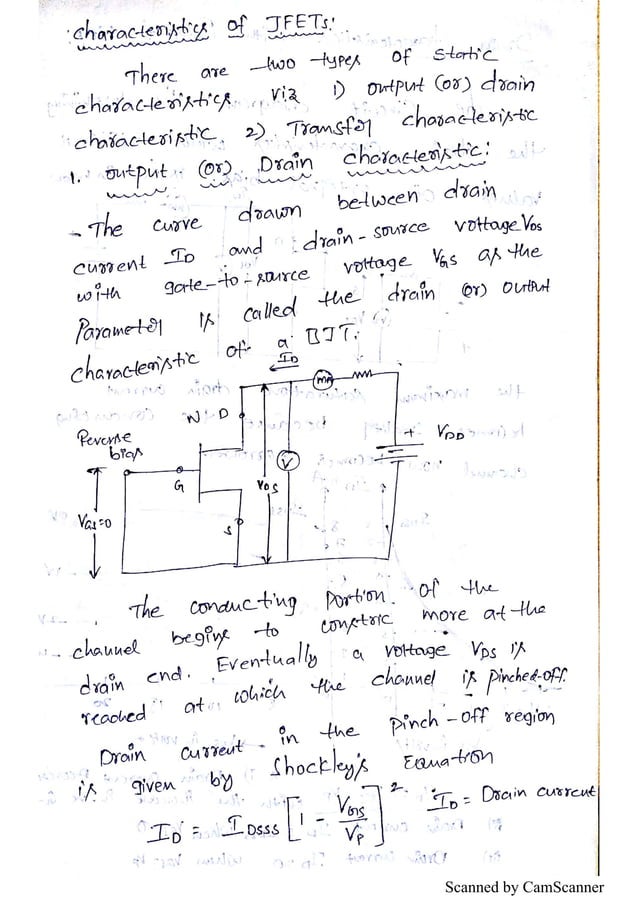 Characteristics of JFETs:
There are two types of static
characteristics viz 1) output (or) drain
characteristic 2) Transfer characteristic
1. output (or) Drain characteristic:
- The curve drawn between drain
current ID and drain-source voltage VDS
with gate-to-source voltage VGS as the
Parameter is called the drain (or) output
characteristic of a BJT.
ID
mA
N D
Reverse
bias
+ VDD
V
G
VDS
VGS=0
S
The conducting portion of the
channel begins to constric more at the
drain end. Eventually a voltage VDS is
reached at which the channel is pinched-off.
Drain current in the pinch-off region
is given by Shockley's Equation
ID = IDSSS [1 - VGS/VP]². ID = Drain current
Scanned by CamScanner